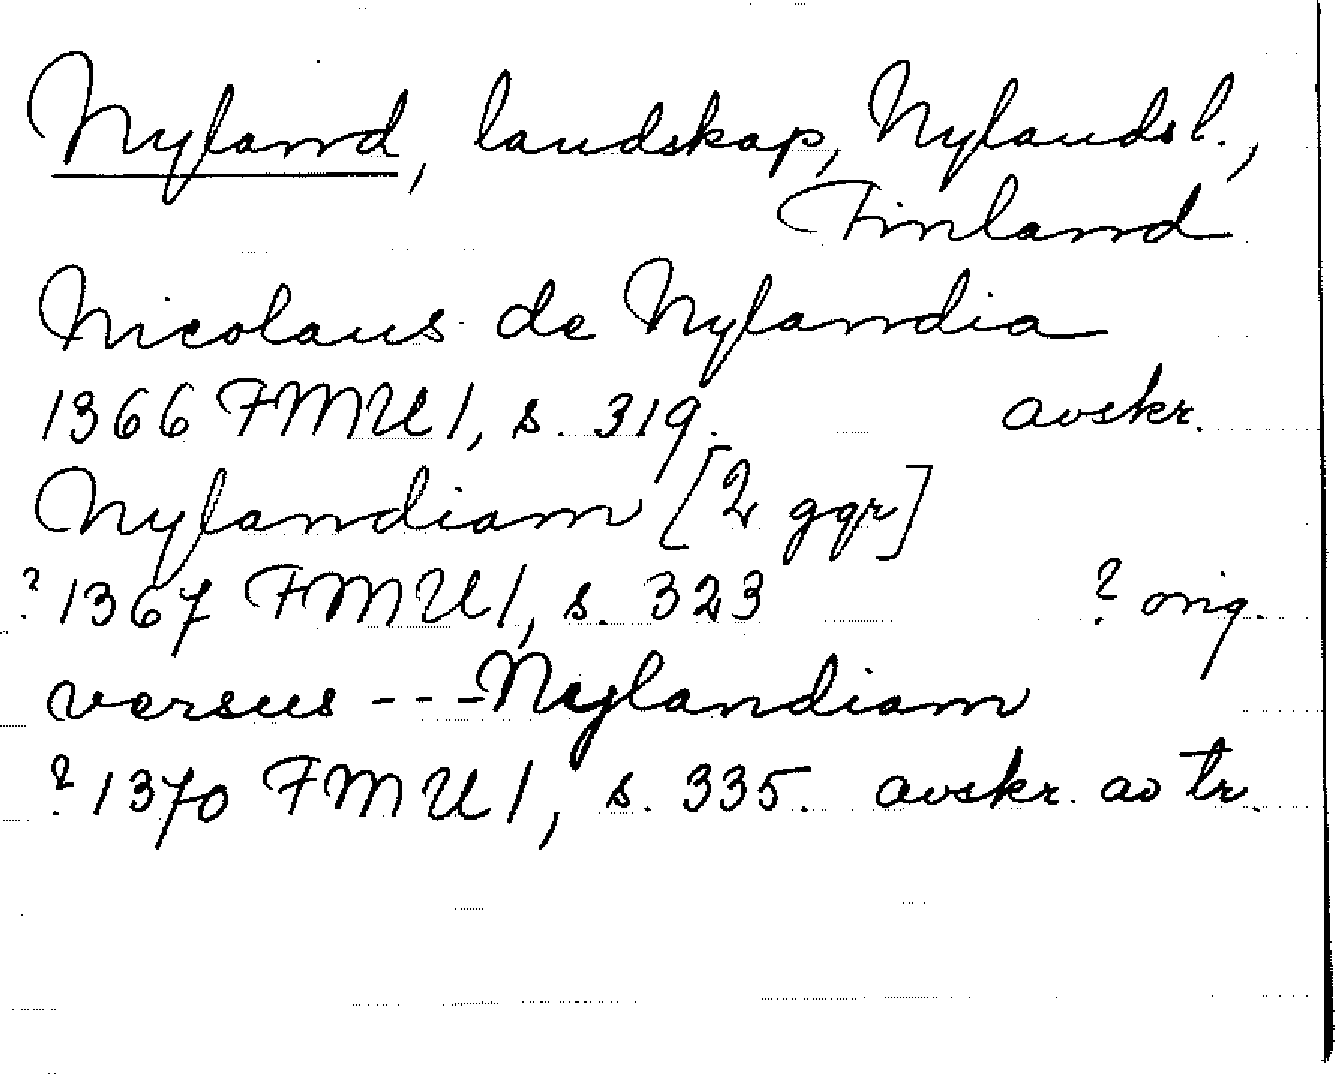 Nyland, landskap, Nylandsl.,
Finland
Nicolaus de Nylandia
1366 FMU 1, s. 319. avskr.
Nylandiam [2 ggr]
? 1367 FMU 1, s. 323 ? orig.
versus --- Nylandiam
? 1370 FMU 1, s. 335. avskr. av tr.